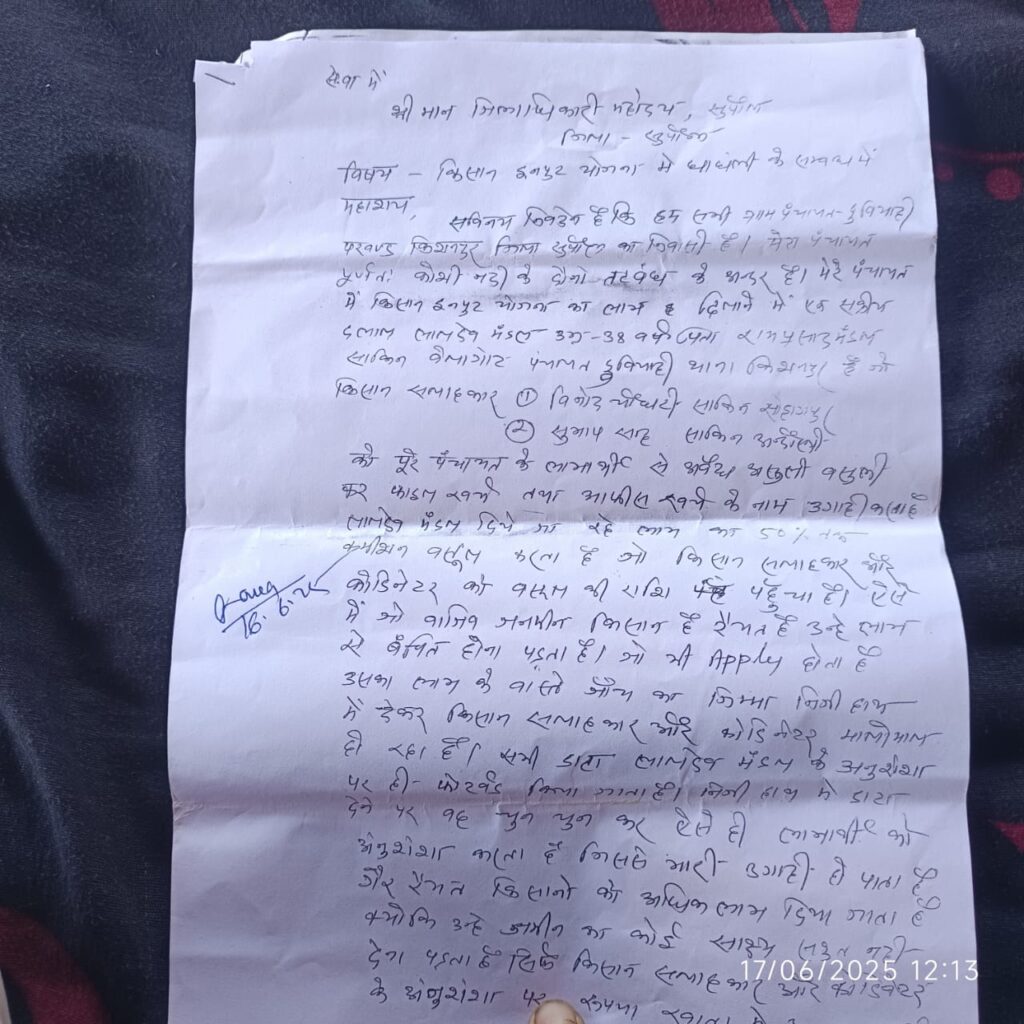 सेवा में
श्रीमान जिलाधिकारी महोदय, सुपौल
जिला - सुपौल
विषय - किसान इनपुट योजना मे धाधंली के सम्बन्ध में
महाशय,
सविनय निवेदन है कि हम सभी ग्राम पंचायत- दुबियाही
परखण्ड किशनपुर जिला सुपौल का निवासी है। मेरा पंचायत
पूर्णतः कोशी नदी के दोनो तटबंध के अन्दर है। मेरे पंचायत
में किसान इनपुट योजना का लाभ दिलाने में एक सक्रीय
दलाल लालदेव मंडल उम्र-38 वर्ष पिता रामप्रसाद मंडल
साकिन बेलागोट पंचायत दुबियाही थाना किशनपुर है जो
किसान सलाहकार ① विनोद चौधरी साकिन
② सुभाष साह साकिन
को पूरे पंचायत के लाभार्थी से अवैध असुली वसुली
कर फाइल खर्च तथा आफीस खर्च के नाम उगाही करता है
लालदेव मंडल दिये जा रहे लाभ का 50% तक
कमीशन वसूल करता है जो किसान सलाहकार और
कोडिनेटर को वसूल की राशि पहुँचा है। ऐसे
में जो वाजिव जनमीन किसान है रैयत है उन्हे लाभ
से बंचित होना पड़ता है। जो भी Apply होता है
उसका लाभ के वास्ते जाँच का जिम्मा निजी हाथ
में देकर किसान सलाहकार और कोडिनेटर मालोमाल
हो रहा है। सभी डाटा लालदेव मंडल के अनुशंशा
पर ही फोरवर्ड किया जाता है। निजी हाथ मे डाटा
देने पर वह चुन चुन कर ऐसे ही लाभार्थी को
अनुशंशा करता है जिससे भारी उगाही हो पाता है
गैर रैयत किसानो को अधिक लाभ दिया जाता है
क्योकि उन्हे जमीन का कोई साक्ष्य सबूत नही
देना पड़ता है सिर्फ किसान सलाहकार और कोडिनेटर
के अनुशंशा पर रूपया खाता मे
16.6.25
17/06/2025 12:13